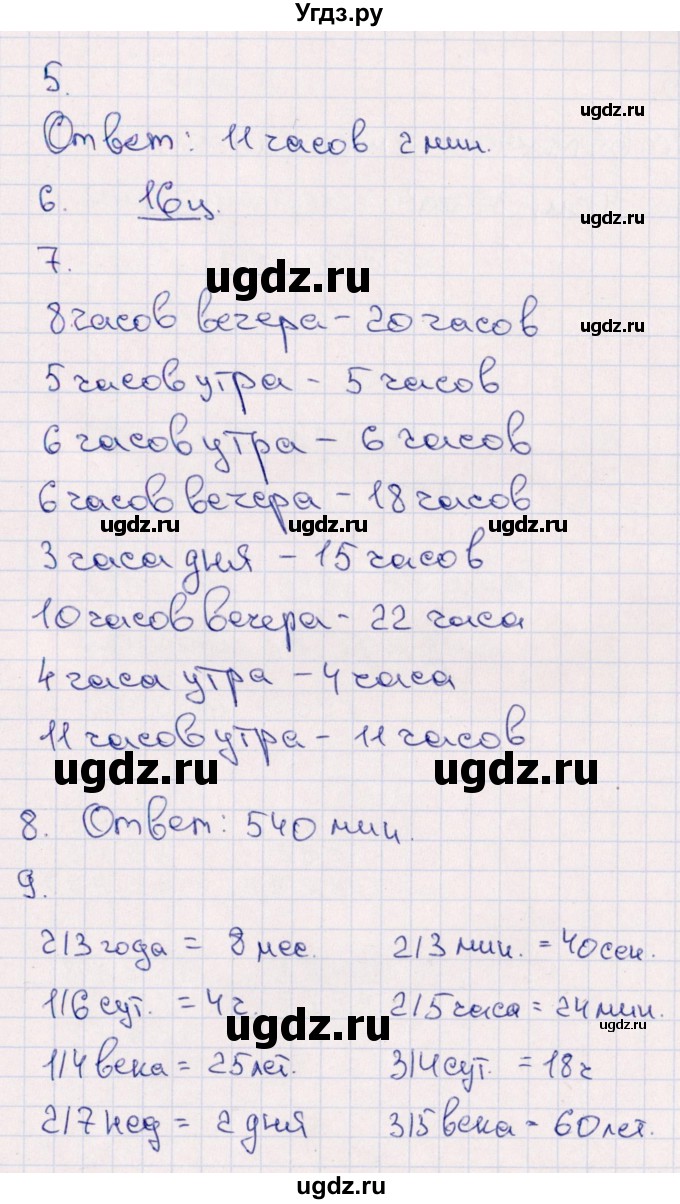 Угдз.ру
5.
ugdz.ru
Ответ: 11 часов 2 мин.
6. 16 ц.
ugdz.ru
7.
ugdz.ru
8 часов вечера - 20 часов
ugdz.ru
5 часов утра - 5 часов
6 часов утра - 6 часов
6 часов вечера - 18 часов
ugdz.ru ugdz.ru ugdz.ru
3 часа дня - 15 часов
10 часов вечера - 22 часа
4 часа утра - 4 часа
11 часов утра - 11 часов
ugdz.ru ugdz.ru
8. Ответ: 540 мин.
9.
2/3 года = 8 мес. 2/3 мин. = 40 сек.
1/6 сут. = 4 ч. 2/5 часа = 24 мин.
ugdz.ru ugdz.ru
1/4 века = 25 лет. 3/4 сут. = 18 ч
2/7 нед = 2 дня 3/5 века - 60 лет.
ugdz.ru ugdz.ru
ugdz.ru